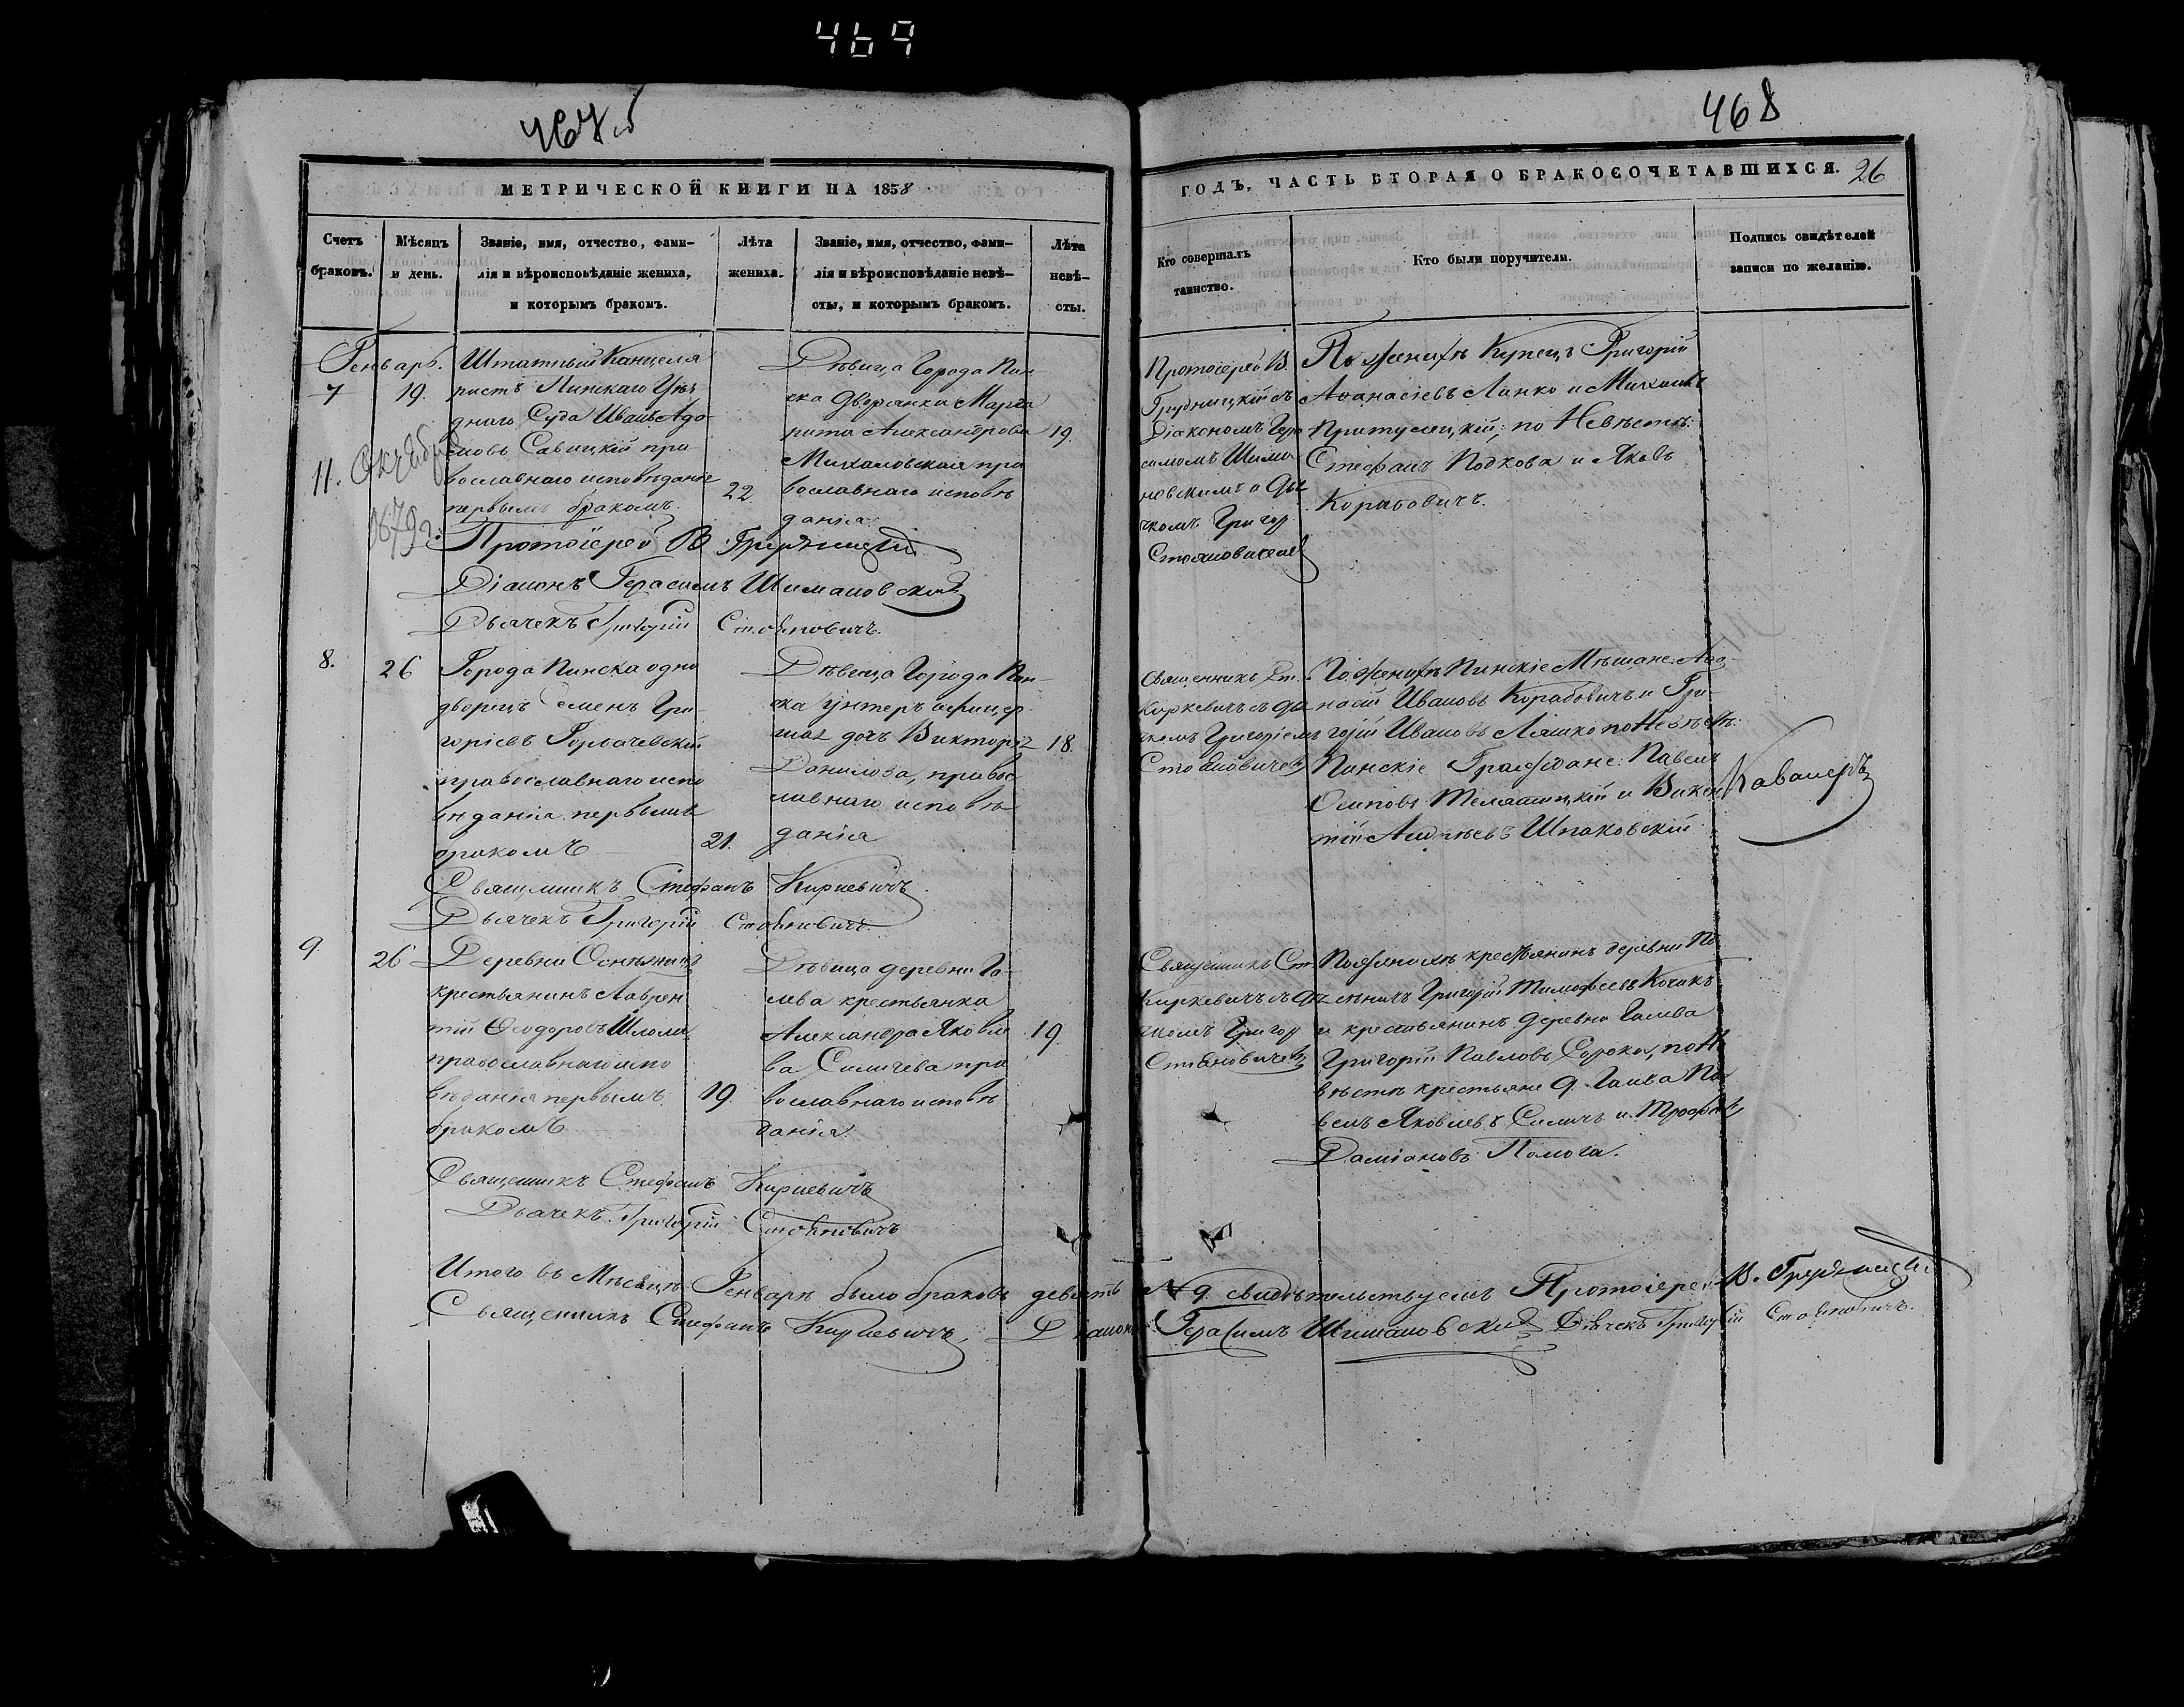 469
467 об
468
МЕТРИЧЕСКОЙ КНИГИ НА 1858
ГОДЪ, ЧАСТЬ ВТОРАЯ О БРАКОСОЧЕТАВШИХСЯ. 26
Счетъ браковъ.
Мѣсяцъ и день.
Званіе, имя, отчество, фами-
лія и вѣроисповѣданіе жениха,
и которымъ бракомъ.
Лѣта
жениха.
Званіе, имя, отчество, фами-
лія и вѣроисповѣданіе невѣ-
сты, и которымъ бракомъ.
Лѣта
невѣ-
сты.
Кто совершалъ
таинство.
Кто были поручители.
Подпись свидѣтелей
записи по желанію.
Генварь.
7
19.
Штатный Канцеля
ристъ Пинскаго Уѣз
днаго Суда Иванъ Ада
мовъ Савицкій пра
вославнаго исповѣданія
первымъ бракомъ.
22.
Дѣвица Города Пин
ска Дворянка Марга
рита Александрова
Михаловская пра
вославнаго исповѣ
данія.
19.
11. Октября
Протоіерей В.
Грудницкій съ
Діакономъ Гера
симомъ Шима
новскимъ и Дья
чкомъ Григор
Стояновичемъ
По женихѣ Купецъ Григорій
Аѳанасіевъ Лянко и Михаилъ
Притулецкій; по Невѣстѣ:
Стефанъ Подкова и Яковъ
Корабовичъ.
Протоіерей В Грудницкій
Діаконъ Герасимъ Шимановскій
Дьячекъ Григорій Стояновичъ.
8.
26
Города Пинска одно
дворецъ Семенъ Гри-
горіевъ Горбачевскій
православнаго испо
вѣданія первымъ
бракомъ
21.
Дѣвица Города Пин-
ска Унтеръ офицер
ская дочь Викторія
Данилова, правос
лавнаго исповѣ
данія
18.
Священникъ Ст.
Киркевичъ съ Дья
чкомъ Григоріемъ
Стояновичемъ
По женихѣ Пинскіе Мѣщане: Аѳа-
насій Ивановъ Корабовичъ и Гри-
горій Ивановъ Ляшко по Невѣстѣ:
Пинскіе Граждане: Павелъ
Осиповъ Телятицкій и Викен
тій Андреевъ Шпаковскій
Кавалеръ
Священникъ Стефанъ Киркевичъ
Дьячекъ Григорій Стояновичъ
9.
26
крестьянинъ Лаврен
тій Ѳеодоровъ Шлома
православнаго испо
вѣданія первымъ
бракомъ
19.
Дѣвица деревни Га-
лева крестьянка
Александра Яковле
ва Силичева пра
вославнаго исповѣ
данія.
19.
Священникъ Ст.
Киркевичъ съ Дья
чкомъ Григор
Стояновичемъ
По женихѣ крестьянинъ деревни
Григорій Тимофеевъ Кочикъ
и крестьянинъ деревни Галева
Григорій Павловъ Сорока, по Не
вѣстѣ крестьяне д. Галева Па
велъ Яковлевъ Силичъ и Трофимъ
Даміановъ Полога.
Священникъ Стефанъ Киркевичъ
Дьячекъ Григорій Стояновичъ
Итого въ Мѣсяцѣ Генварѣ было браковъ девять № 9. свидѣтельствуемъ Протоіерей В. Грудницкій
Священникъ Стефанъ Киркевичъ, Діаконъ Герасимъ Шимановскій Дьячекъ Григорій Стояновичъ.